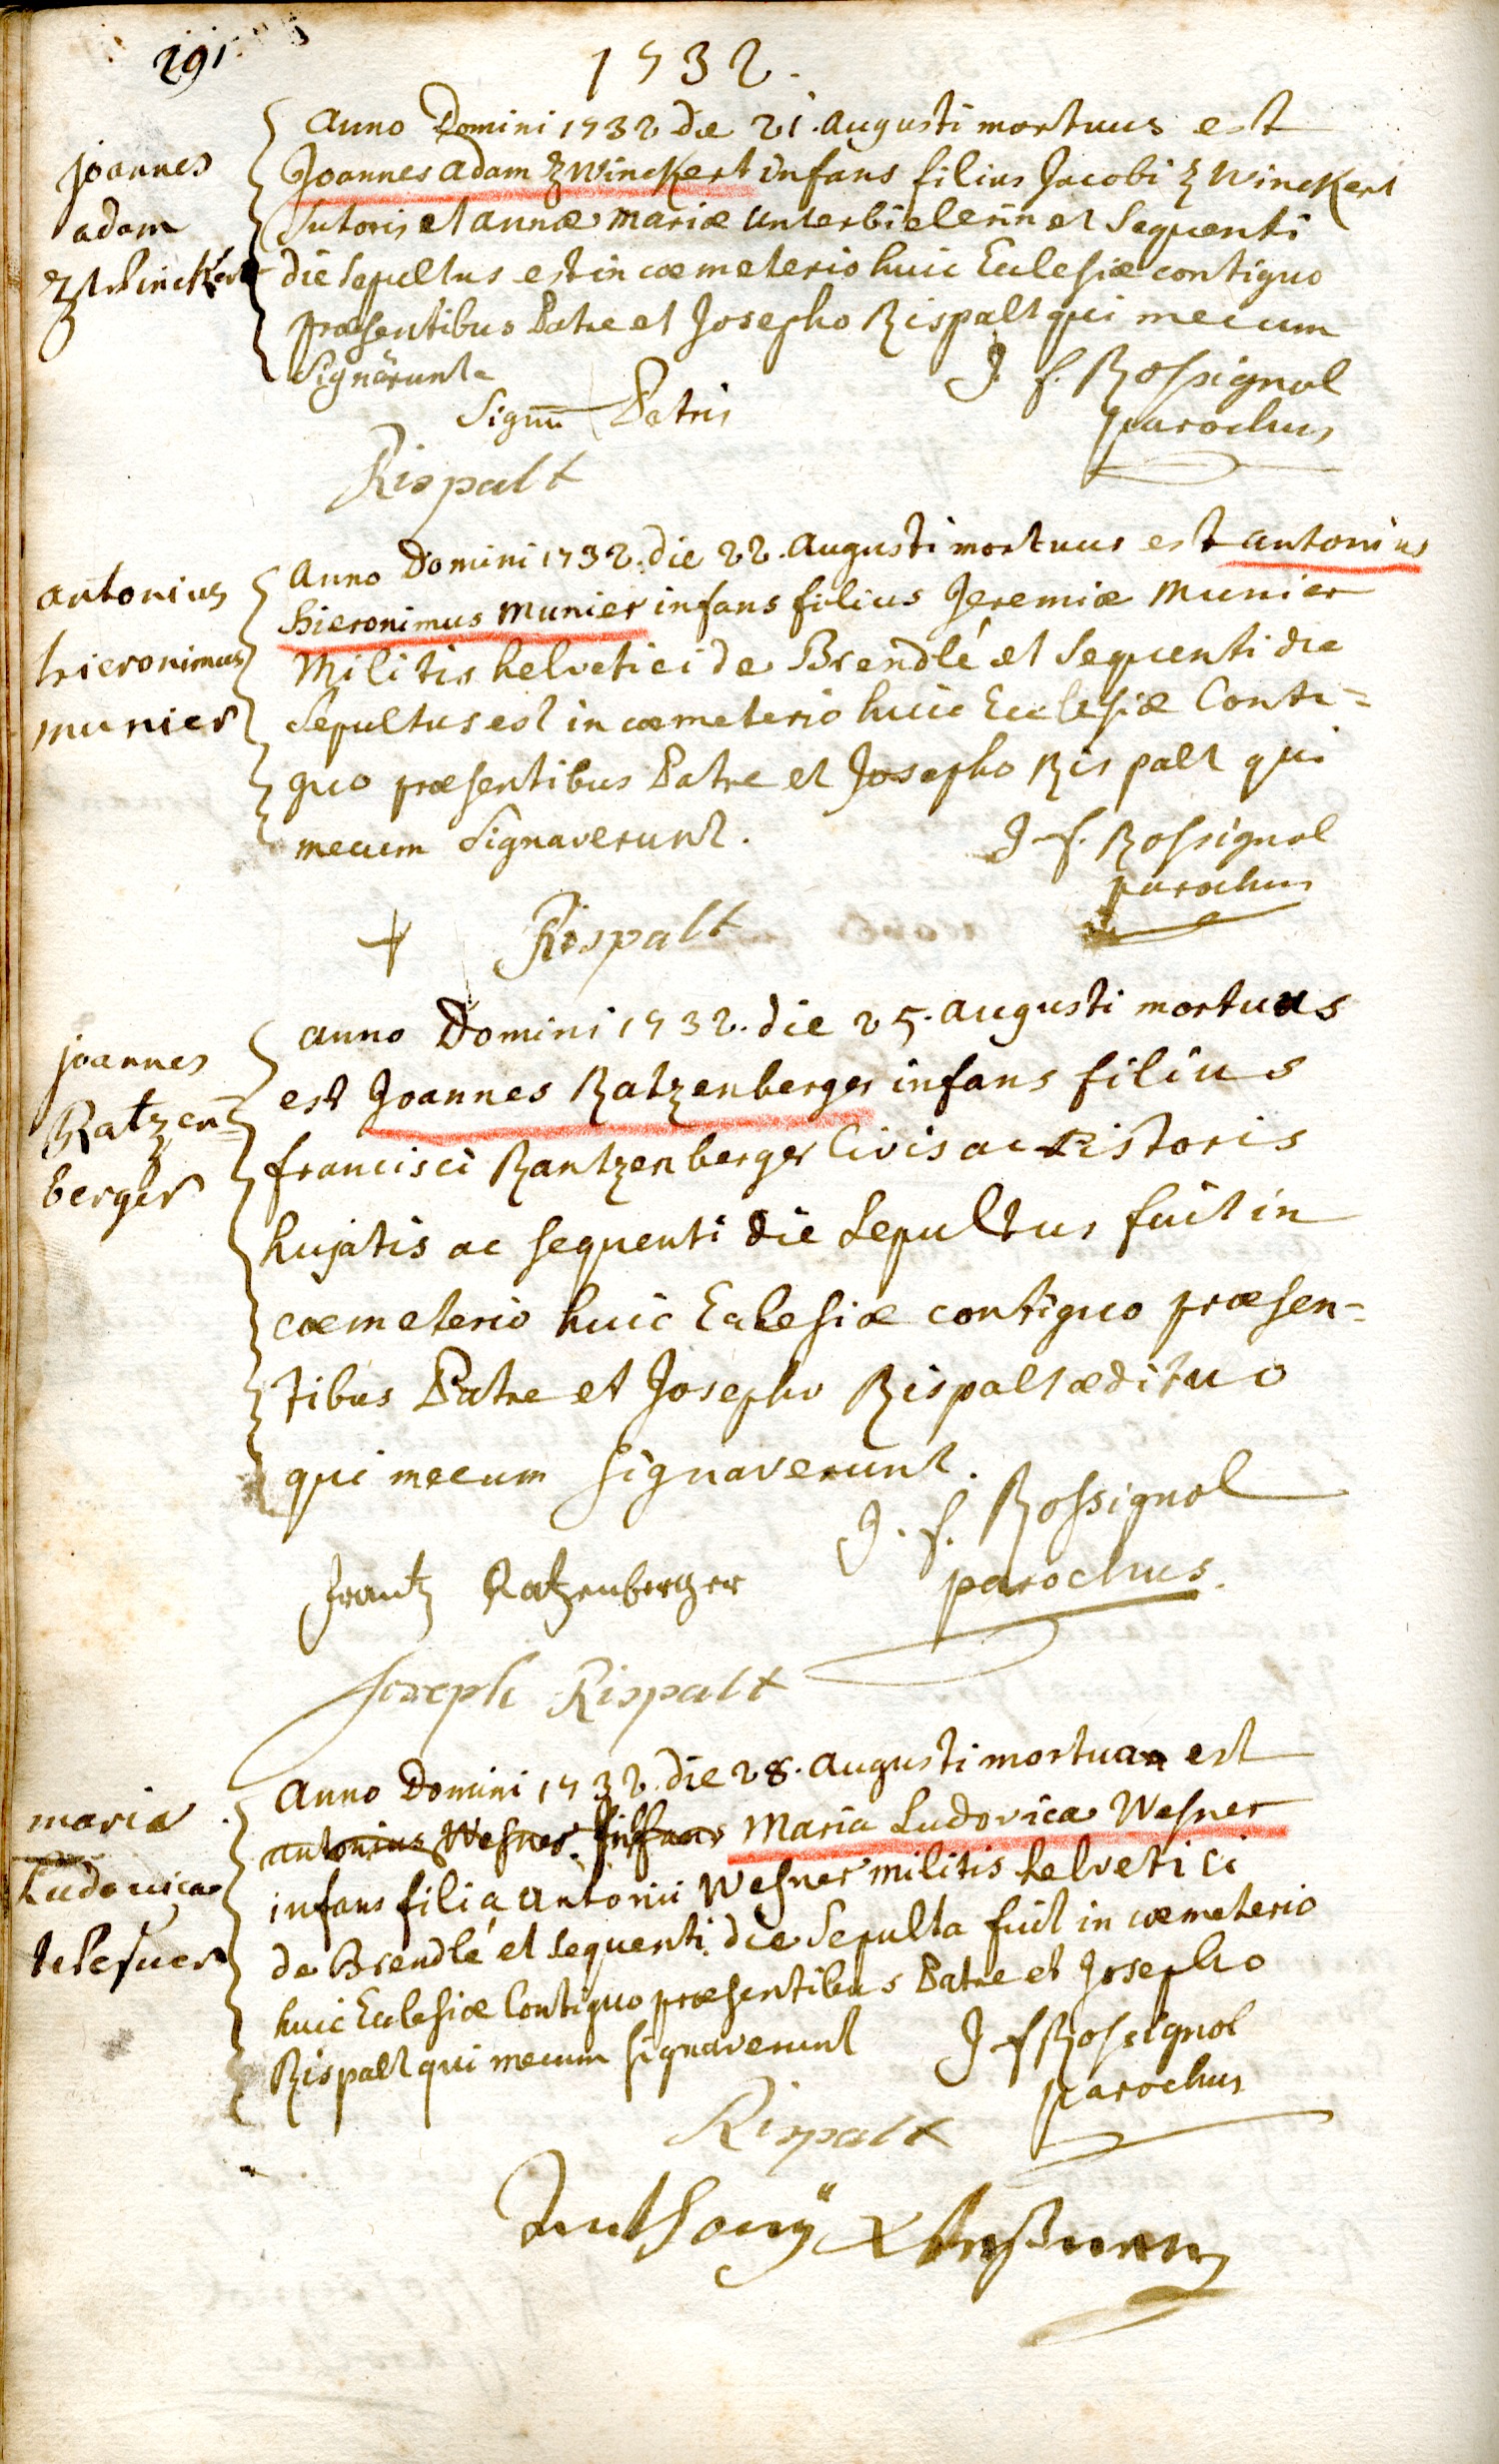 291
1732.
joannes
adam
Zwinckert
Anno Domini 1732 die 21. augusti mortuus est
Joannes adam Zwinckert infans filius Jacobi Zwinckert
Sutoris et annæ mariæ unterbielerin et Sequenti
die Sepultus est in cœmeterio huic Ecclesiæ contiguo
præsentibus Patre et Josepho Rispalt qui mecum
Signarunt
J. f. Rossignol
parochus
Signu Patris
Rispalt
antonius
hieronimus
munier
Anno Domini 1732. die 22. augusti mortuus est antonius
hieronimus munier infans filius Jeremiæ munier
Militis helvetici de Brendlé et Sequenti die
Sepultus est in cœmeterio huic Ecclesiæ Conti=
guo præsentibus Patre et Josepho Rispalt qui
mecum Signaverunt.
J. f. Rossignol
parochus
+ Rispalt
joannes
Ratzen=
berger
anno Domini 1732. die 25. augusti mortuus
est Joannes Ratzenberger infans filius
francisci Rantzenberger Civis ac Pistoris
hujatis ac sequenti die Sepultus fuit in
cœmeterio huic Eclesiæ contiguo præsen=
tibus Patre et Josepho Rispalt ædituo
qui mecum signaverunt.
J. f. Rossignol
parochus.
Frantz Ratzenberger
Joseph Rispalt
maria
Ludovica
Wesner
Anno Domini 1732. die 28. augusti mortua est
antonius Wesner Infans Maria Ludovica Wesner
infans filia antonii Wesner militis helvetici
de Brendlé et sequenti die Sepulta fuit in cœmeterio
huic Eclesiæ Contiguo præsentibus Patre et Josepho
Rispalt qui mecum signaverunt
J f Rossignol
parochus
Rispalt
Anthony